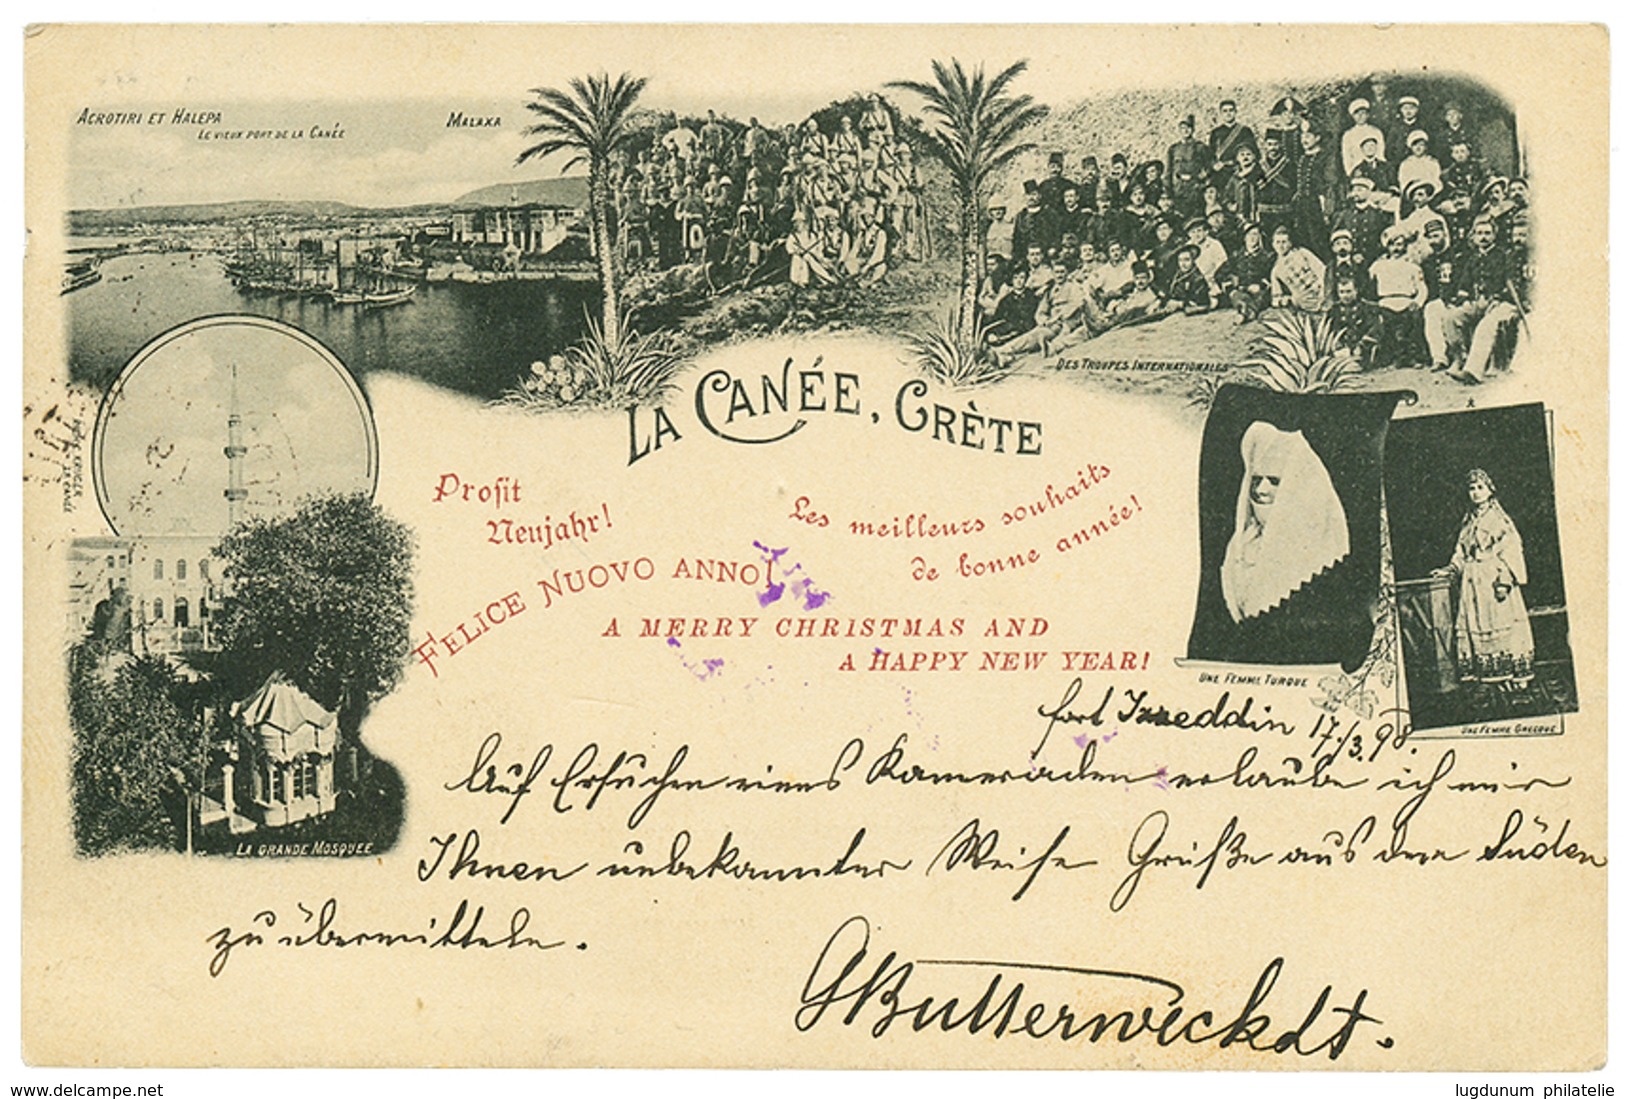 ACROTIRI ET HALEPA
LE VIEUX PORT DE LA CANÉE
MALAXA
DES TROUPES INTERNATIONALES
LA CANÉE, CRÈTE
Profit
Neujahr!
Les meilleurs souhaits
de bonne année!
FELICE NUOVO ANNO!
A MERRY CHRISTMAS AND
A HAPPY NEW YEAR!
UNE FEMME TURQUE
UNE FEMME GRECQUE
LA GRANDE MOSQUÉE
fort Izzeddin 17./3.98.
Auf Ersuchen eines Kameraden erlaube ich mir
Ihnen unbekannter Weise Grüße aus dem Süden
zu übermitteln.
GButterweckdt.
www.delcampe.net
lugdunum philatelie